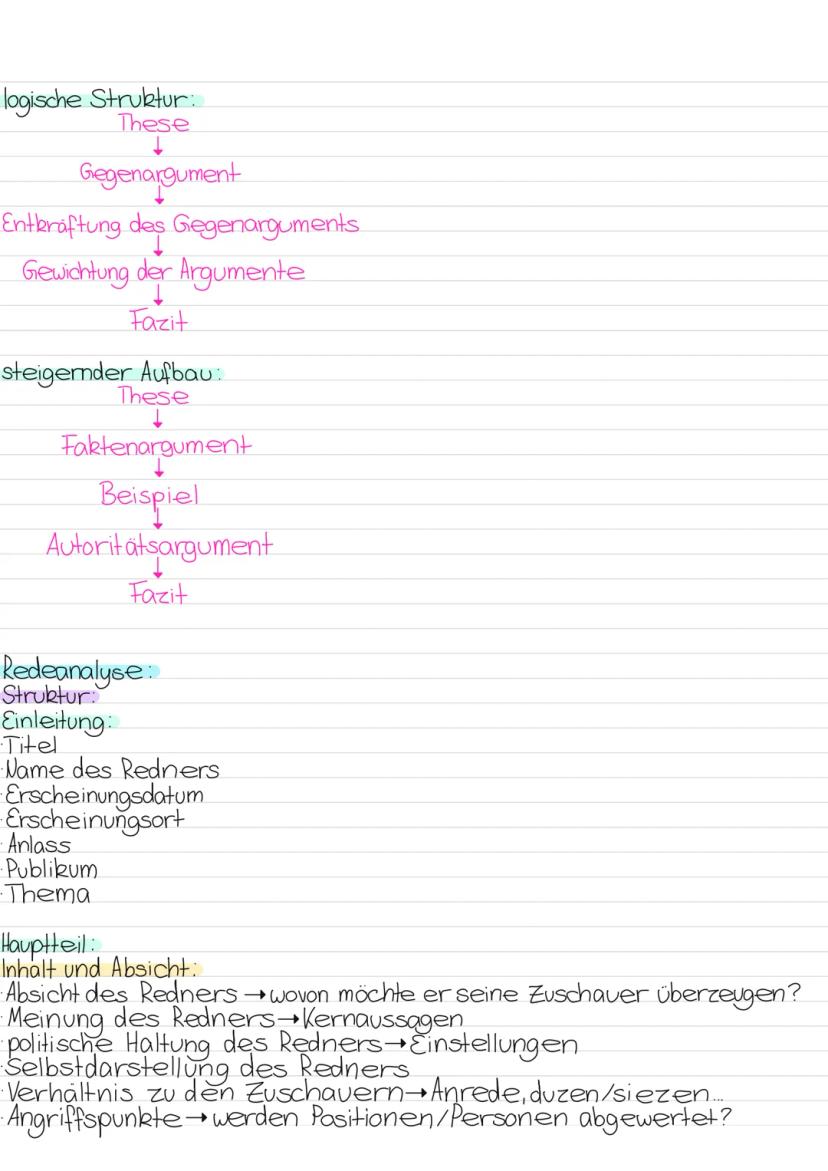 logische Struktur:
These
↓
Gegenargument
↓
Entkräftung des Gegenarguments
↓
Gewichtung der Argumente
↓
Fazit
steigernder Aufbau:
These
↓
Faktenargument
↓
Beispiel
↓
Autoritätsargument
↓
Fazit
Redeanalyse:
Struktur:
Einleitung:
·Titel
·Name des Redners
·Erscheinungsdatum
·Erscheinungsort
·Anlass
·Publikum
·Thema
Hauptteil:
Inhalt und Absicht:
·Absicht des Redners →wovon möchte er seine Zuschauer überzeugen?
·Meinung des Redners→Kernaussagen
·politische Haltung des Redners→Einstellungen
·Selbstdarstellung des Redners
·Verhältnis zu den Zuschauern→Anrede, duzen/siezen...
·Angriffspunkte →werden Positionen/Personen abgewertet?